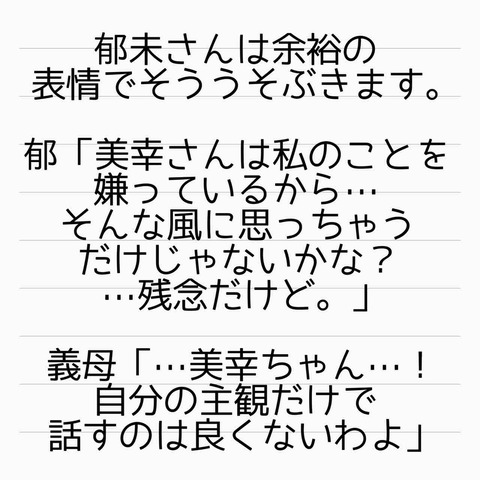 郁未さんは余裕の
表情でそううそぶきます。
郁「美幸さんは私のことを
嫌っているから…
そんな風に思っちゃう
だけじゃないかな？
…残念だけど。」
義母「…美幸ちゃん…！
自分の主観だけで
話すのは良くないわよ」